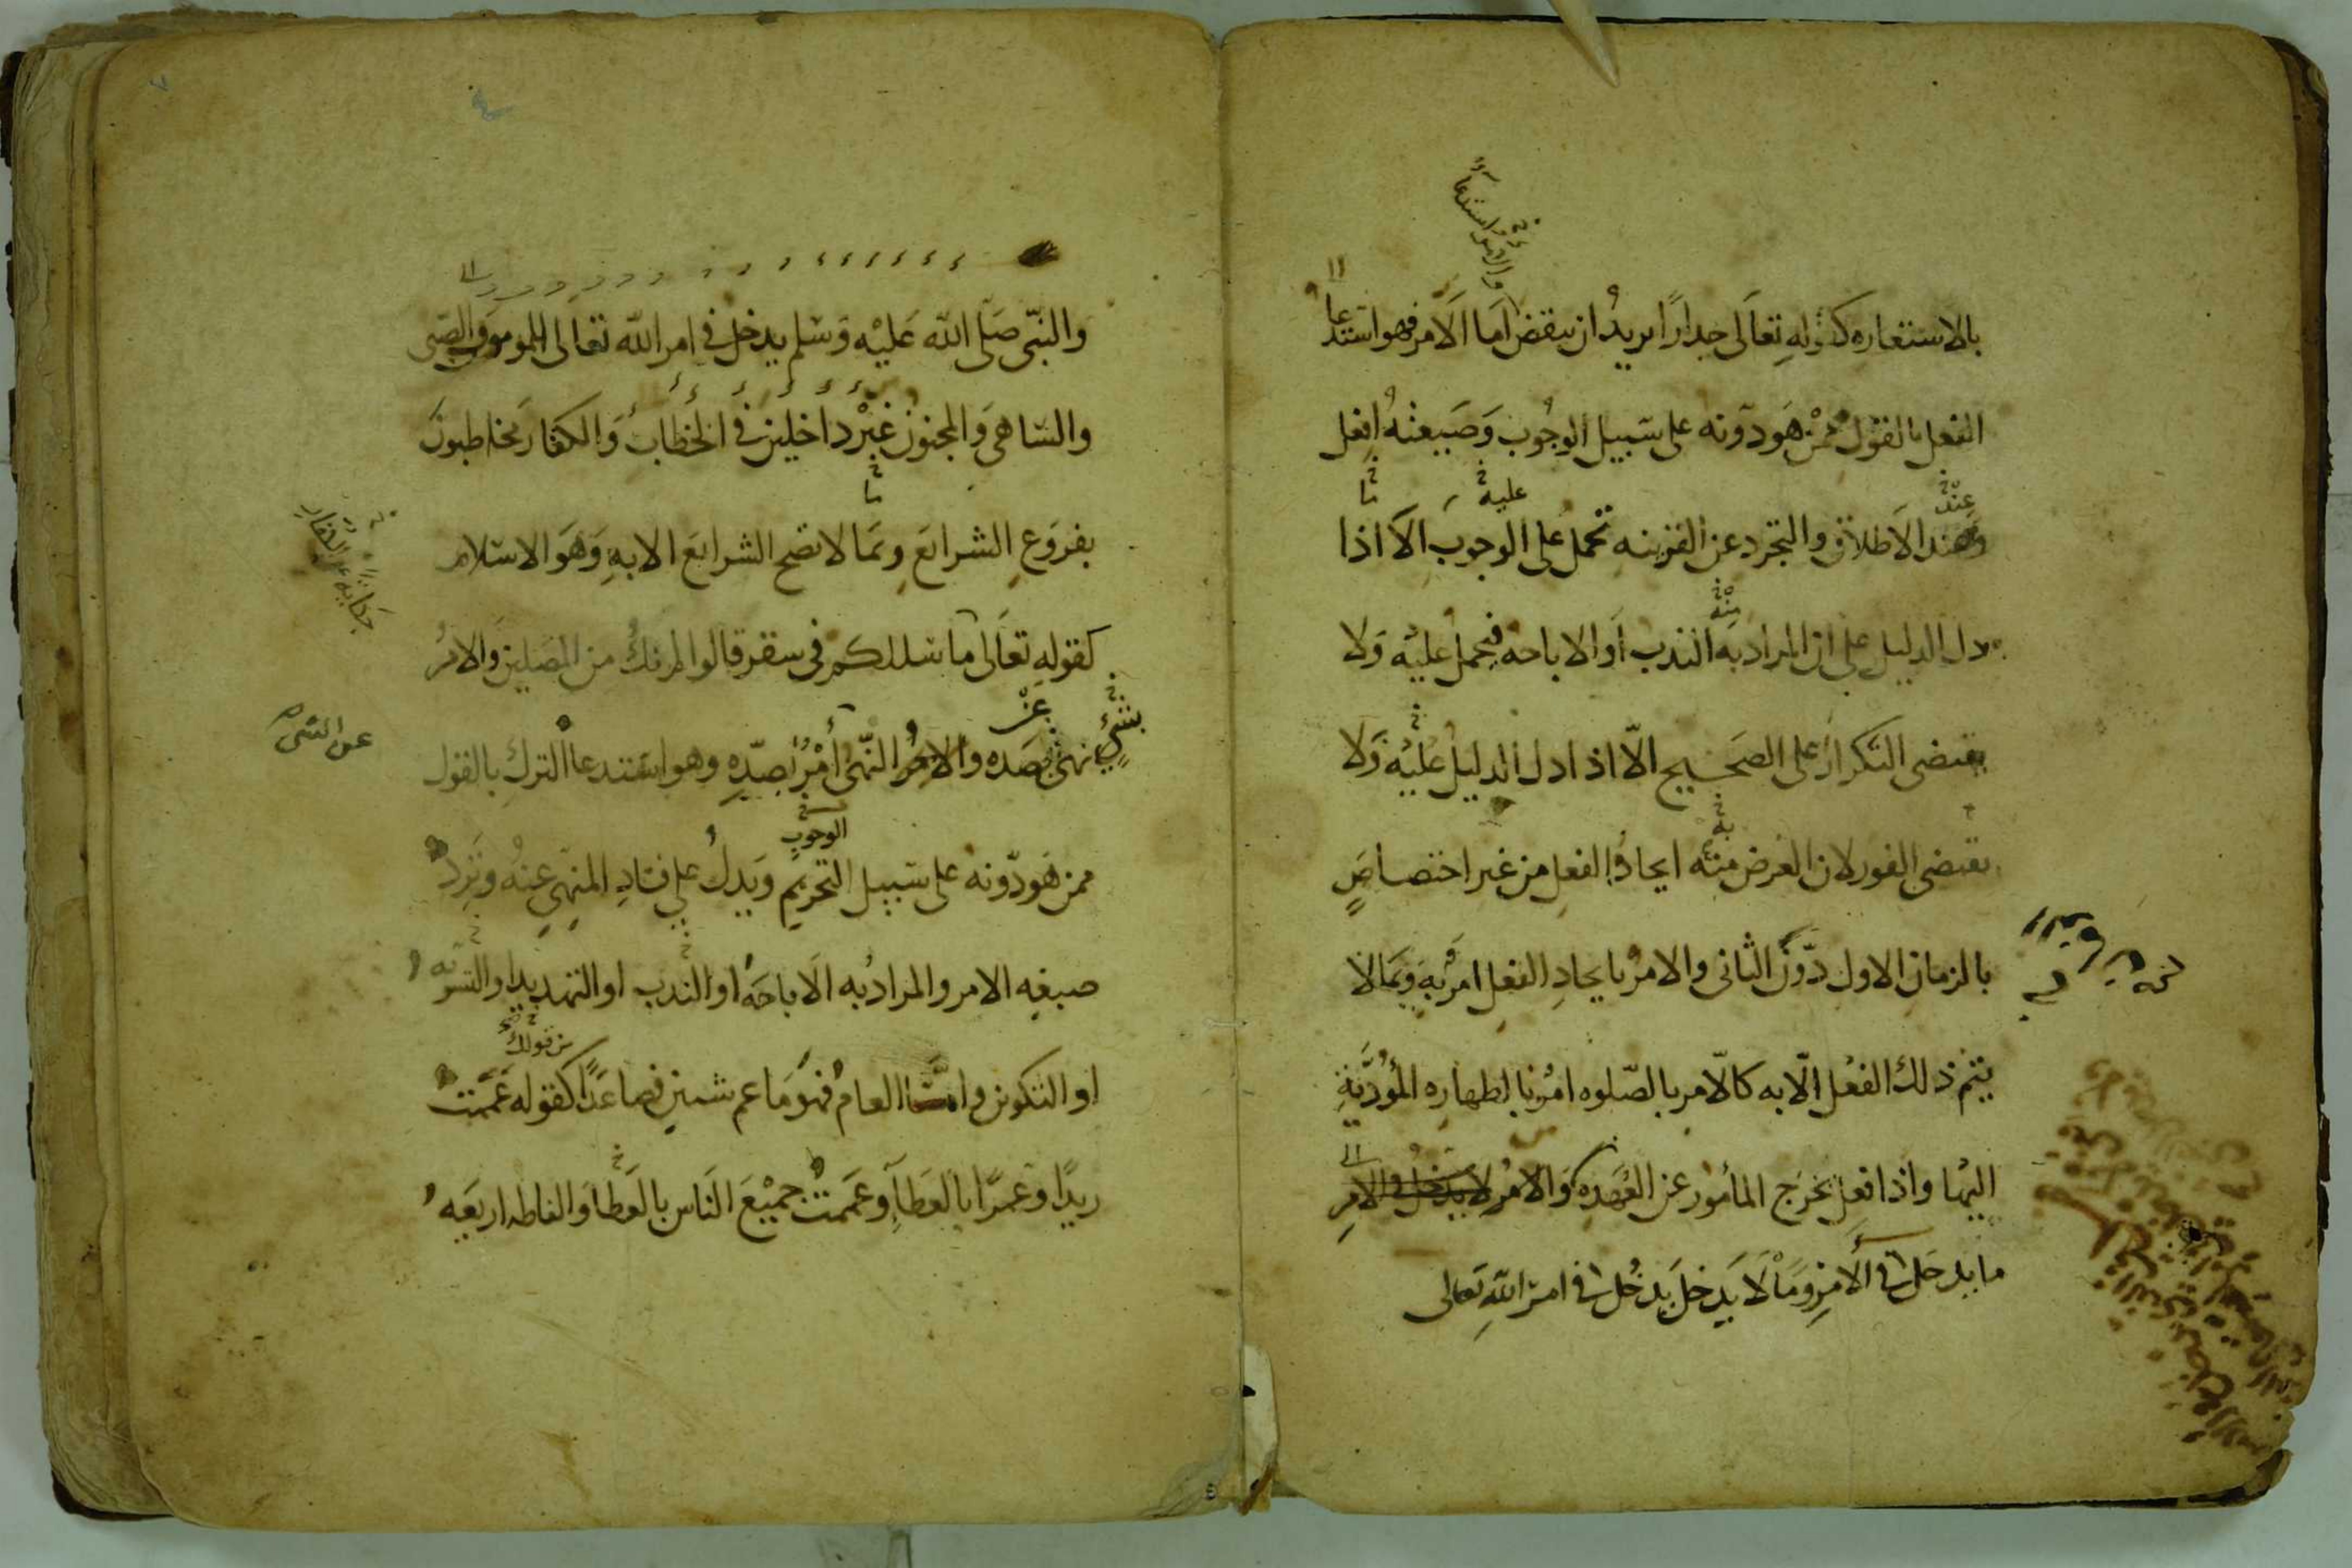 والامر استدعاء
بالاستعاره كقوله تعالى جدارًا يريدُ ان ينقض اما الامر فهو استدعا
الفعل بالقول ممن هو دونه على سبيل الوجُوب وَصَيغته افعل
عند
عليه
ما
وعند الاطلاق والتجرد عن القرينه تحمل على الوجوب الا اذا
منه
دل الدليل على ان المراد به الندب أو الاباحه فيحمل عليه ولا
يقتضى التكرار على الصحيح الّا اذا دل الدليل عليه ولا
به
يقتضى الفور لان الغرض منه ايجادُ الفعل من غير اختصاصٍ
بالزمان الاول دون الثانى والامر بايجادِ الفعل امر به وبما لا
يتم ذلك الفعل الّا به كالامر بالصّلوه امر بالطهاره المُؤدّيَةِ
اليها واذا فعل يخرج المأمور عن العهدة والامر لا يدخل فى الامر
ما يدخل فى الامرِ وَمَا لَا يَدخل يَدخُل فى امر اللهِ تعالى
والنّبى صَلى الله عَليْه وَسَلم يدخل فى امر الله تعالى المومنون والصبى
والساهى وَالمجنون غيْر داخلين فى الخطاب وَالكفار مخاطبونَ
ما
بفروَعِ الشرايَع وبمَا لا تصح الشرايَع الا بهِ وَهَو الاسلام
حكاية عن الكفار
كقولهِ تعَالى ما سلككم فى سقر قالوا لم نكُ من المصَلين وَالامرُ
بشىءٍ
عن
نهى بضده والامر النّهى أمْرٌ بضدّهِ وهو استدعا الترك بالقول
عن الشىء
الوجوب
ممن هَو دّونه على سَبيل التحريم وَيَدلُ على فسادِ المنهى عنهُ وتردُ
صيغه الامر والمرادُ به الَاباحَهُ او الندب او التهديد او التسويه
من قولك
او التكوين وامّا العامُ فهَو مَا عم شيئين فصاعدًا كقوله عَممت
زيدًا وعمرًا بالعَطاءِ وعَممتُ جميْعَ الناس بالعَطا وَالفاظه اربَعه